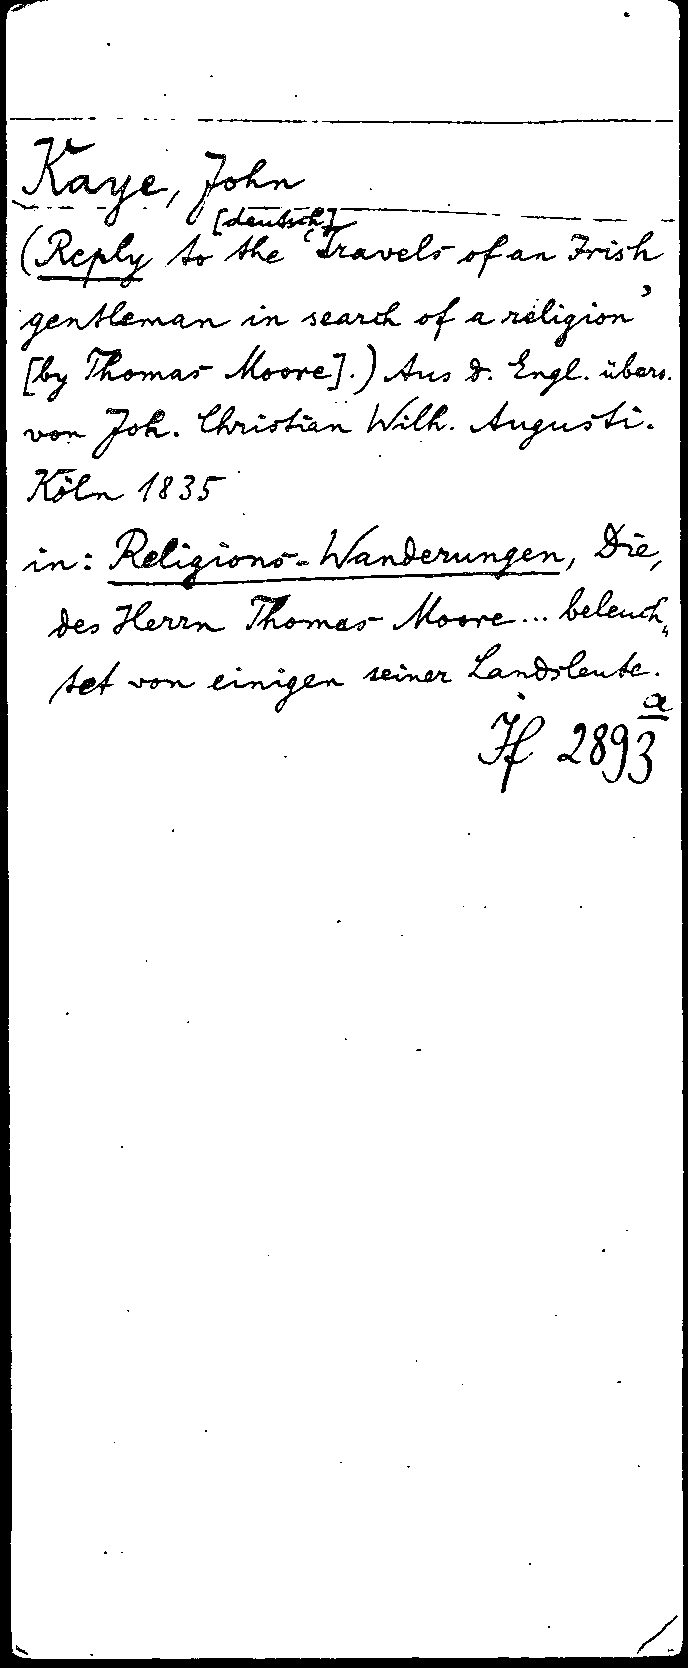 Kaye, John
[deutsch]
(Reply to the 'Travels of an Irish
gentleman in search of a religion'
[by Thomas Moore].) Aus d. Engl. übers.
von Joh. Christian Wilh. Augusti.
Köln 1835
in: Religions-Wanderungen, Die,
des Herrn Thomas Moore... beleuch„
tet von einigen seiner Landsleute.
If 2893 a